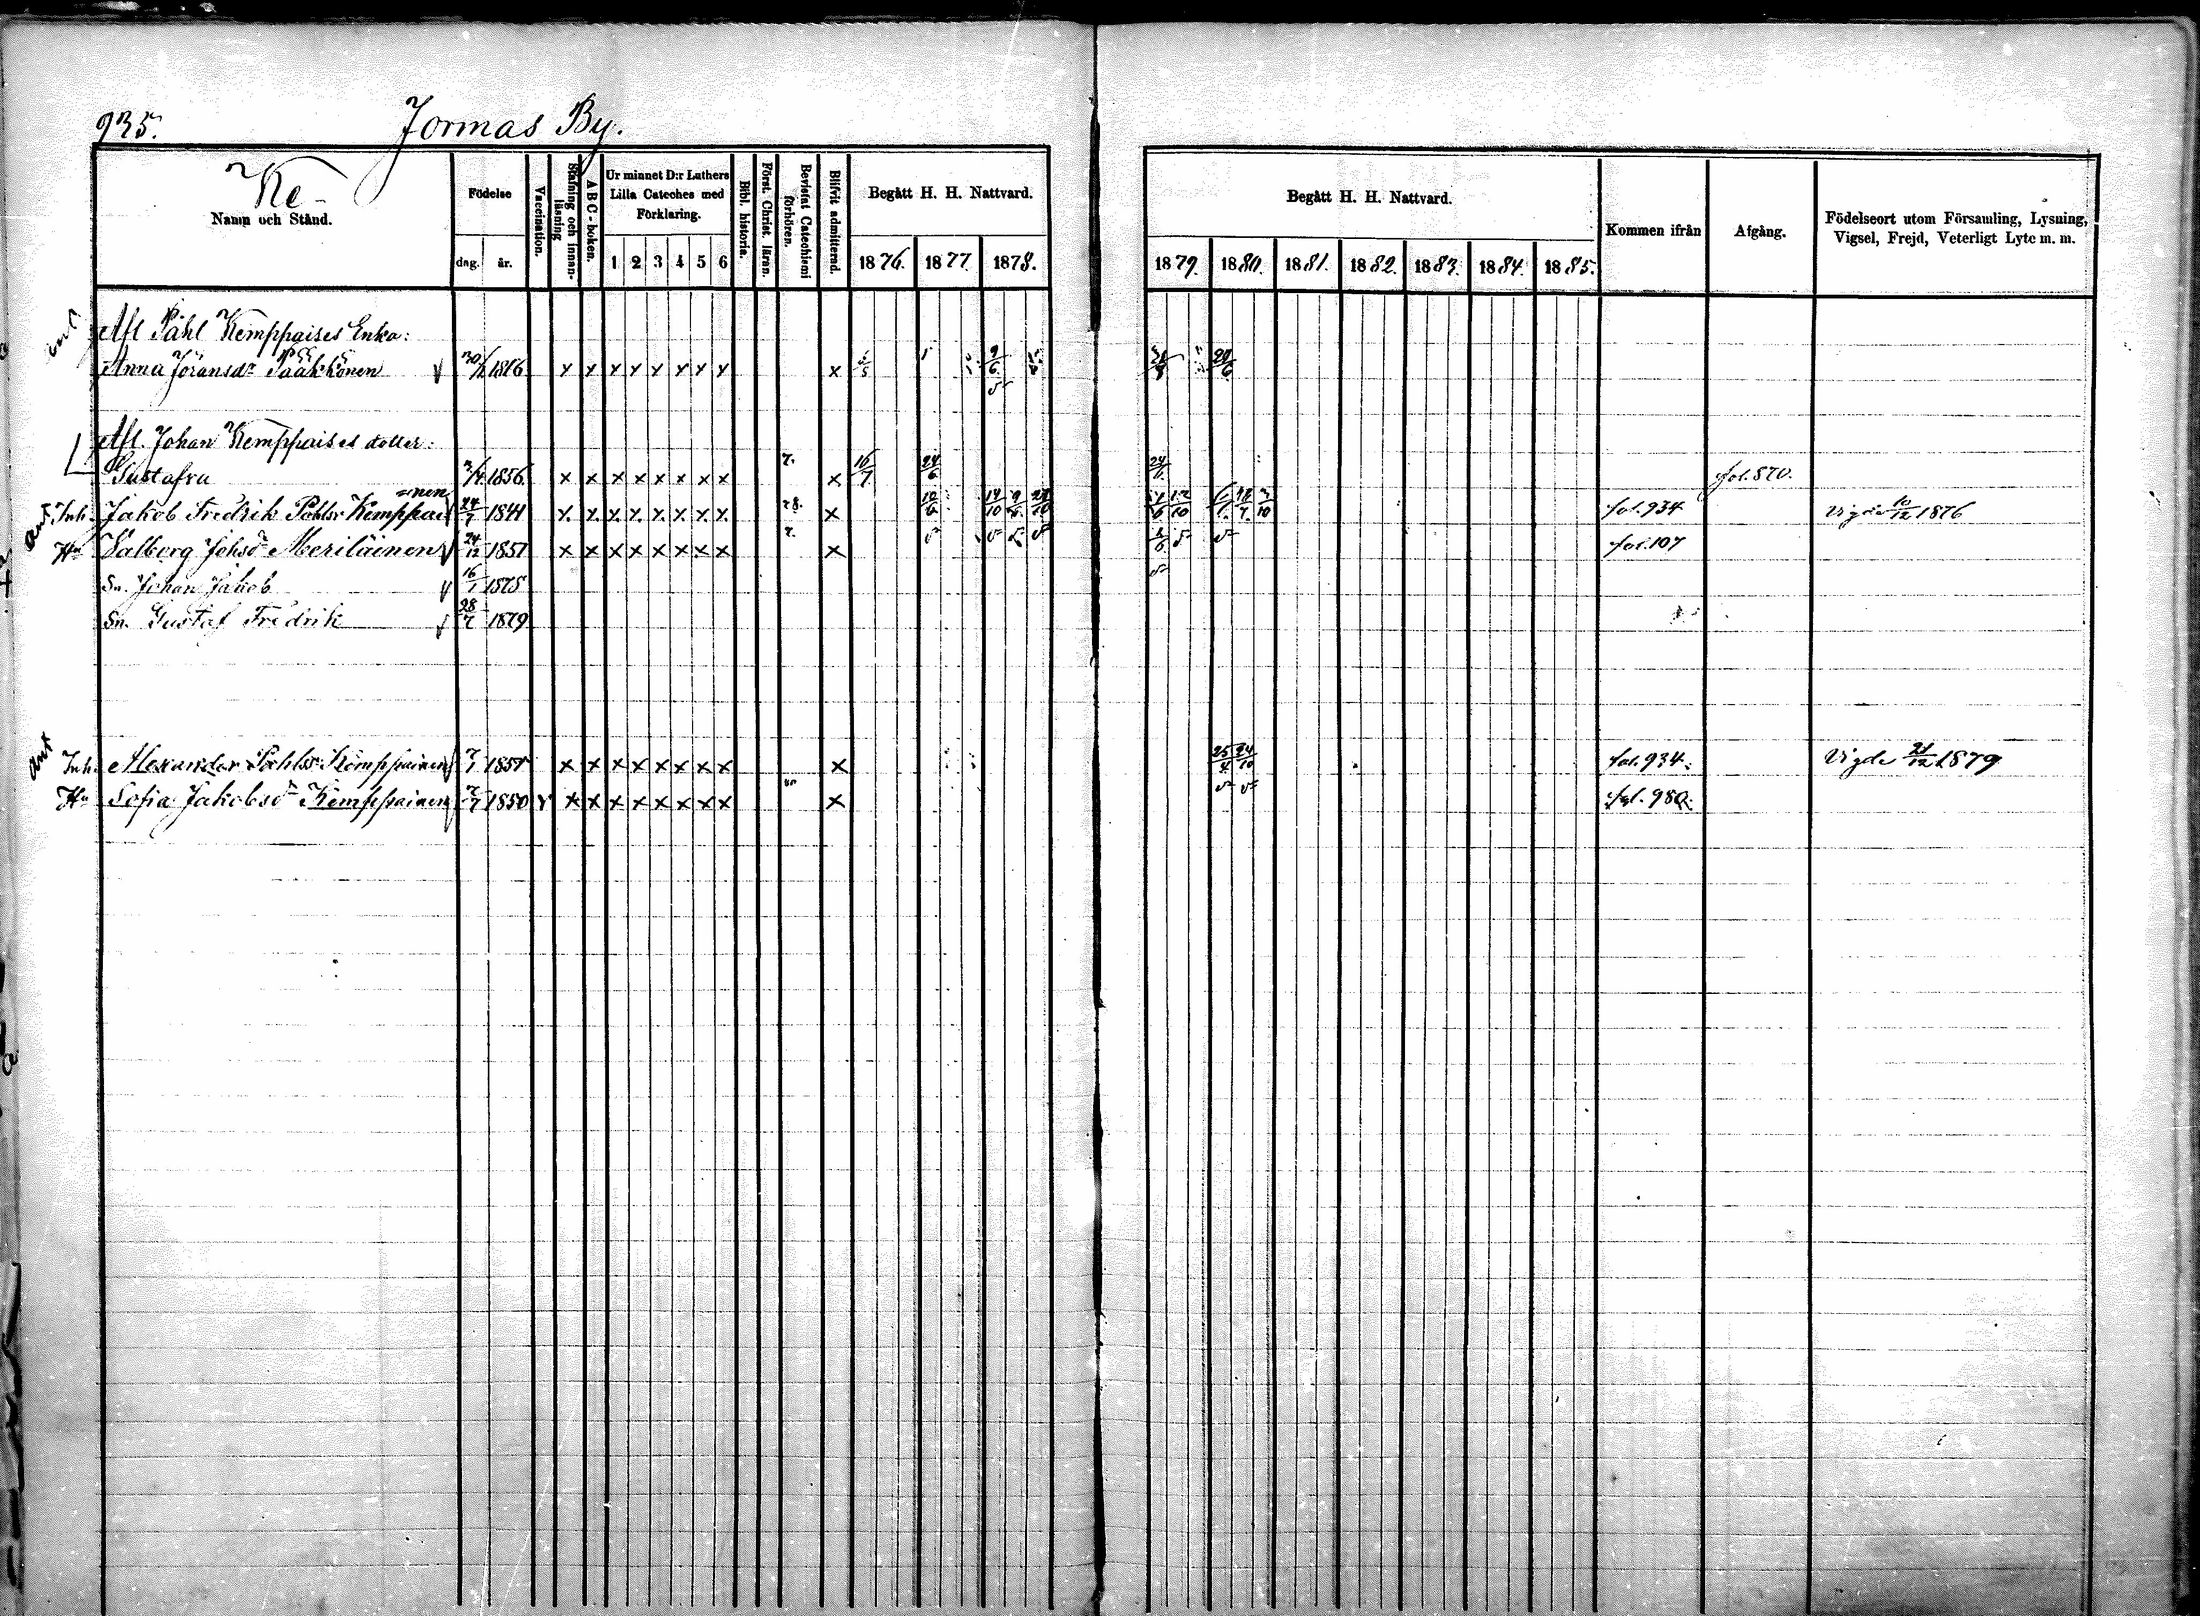 935.
Jormas By.
Ke-
Namn och Stånd.
Födelse
dag. år.
Vaccination.
Stafning och innanläsning
A B C-boken.
Ur minnet D:r Luthers Lilla Cateches med Förklaring.
1 2 3 4 5 6
Bibl. historia.
Först. Christ. läran.
Bevistat Catechismi förhören.
Blifvit admitterad.
Begått H. H. Nattvard.
1876. 1877. 1878.
Begått H. H. Nattvard.
1879. 1880. 1881. 1882. 1883. 1884. 1885.
Kommen ifrån
Afgång.
Födelseort utom Församling, Lysning, Vigsel, Frejd, Veterligt Lyte m. m.
Afl Påhl Kemppaises Enka:
Anna Jöransdr Pääkkönen 1816 x x x x x x x x x 9/6 20/6
Afl. Johan Kemppaises dotter:
Gustafva 1856 x x x x x x x x x 16/7 24/6 24/6 fol. 870.
Inh. Jakob Fredrik Påhlsr Kemppainen 24/7 1841 x x x x x x x x x 10/6 14/10 fol. 934 Vigde 10/12 1876
Hu Valborg Johsdr Meriläinen 24/12 1851 x x x x x x x x x fol. 107
Sn. Johan Jakob 16/1 1878
Sn. Gustaf Fredrik 28/7 1879
Inh. Alexander Påhlsr Kemppainen 7/1 1851 x x x x x x x x x 25/4 24/10 fol. 934. Vigde 21/12 1879
Hu Sofia Jakobsdr Kemppainen 7/7 1850 v x x x x x x x x x fol. 980.